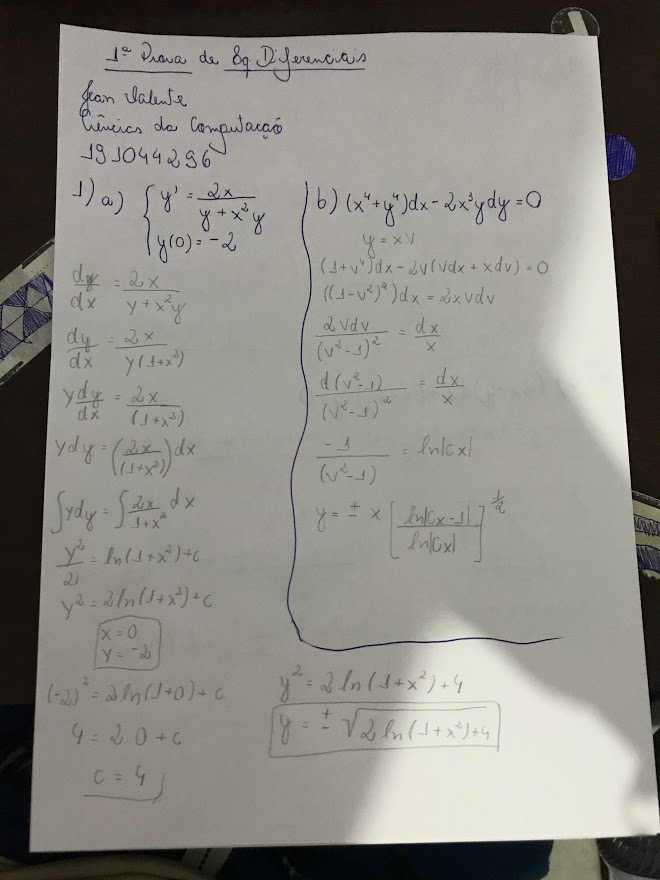 1ª Prova de Eq Diferenciais
Jean Valente
Ciências da Computação
191044296
1) a) { y' = 2x / (y + x²y)
y(0) = -2
dy/dx = 2x / (y + x²y)
dy/dx = 2x / (y(1+x²))
y dy/dx = 2x / (1+x²)
ydy = (2x / (1+x²)) dx
∫ydy = ∫ 2x / (1+x²) dx
y²/2 = ln(1+x²)+c
y² = 2ln(1+x²)+c
x=0
y=-2
(-2)² = 2ln(1+0)+c
4 = 2.0+c
c = 4
y² = 2ln(1+x²)+4
y = ± √(2ln(1+x²)+4)
b) (x⁴+y⁴)dx - 2x³ydy = 0
y = xv
(1+v⁴)dx - 2v(vdx + xdv) = 0
((1-v²)²)dx = 2xvdv
2vdv / (v²-1)² = dx/x
d(v²-1) / (v²-1)² = dx/x
-1 / (v²-1) = ln|cx|
y = ± x [ln|cx-1| / ln|cx|]^(1/2)